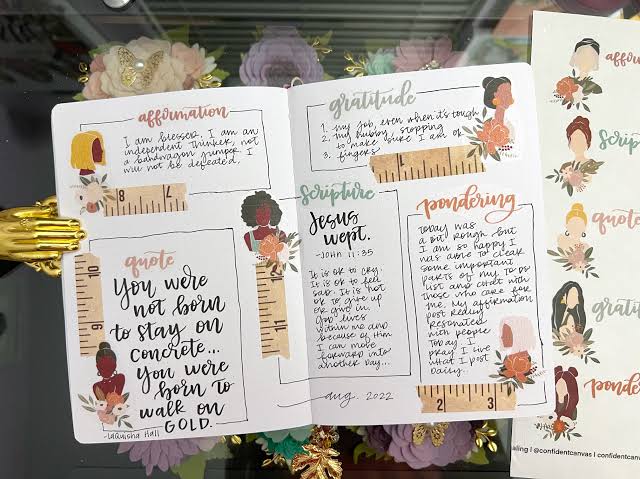 affirmation
I am blessed. I am an
independent thinker, not
a bandwagon jumper. I
will not be defeated.
8 7
quote
You were
not born
to stay on
concrete...
You were
born to
walk on
GOLD.
-LaQuisha Hall
10
9
gratitude
1. my job, even when it's tough
2. my hubby, stopping
to make sure I am ok
3. fingers
scripture
Jesus
wept.
-JOHN 11:35
It is ok to cry.
It is ok to feel
sad. It is not
ok to give up
or give in.
God lives
within me and
because of Him
I can move
forward into
another day...
11
pondering
Today was
a bit rough but
I am so happy I
was able to clear
some important
parts of my to do
list and chat with
those who care for
me. My affirmation
post really
resonated
with people
today. I
pray I live
what I post
daily...
2 3
aug. 2022
affirm
script
quote
gratitu
ponder
aling | @confidentcanvas | confidentcanvas